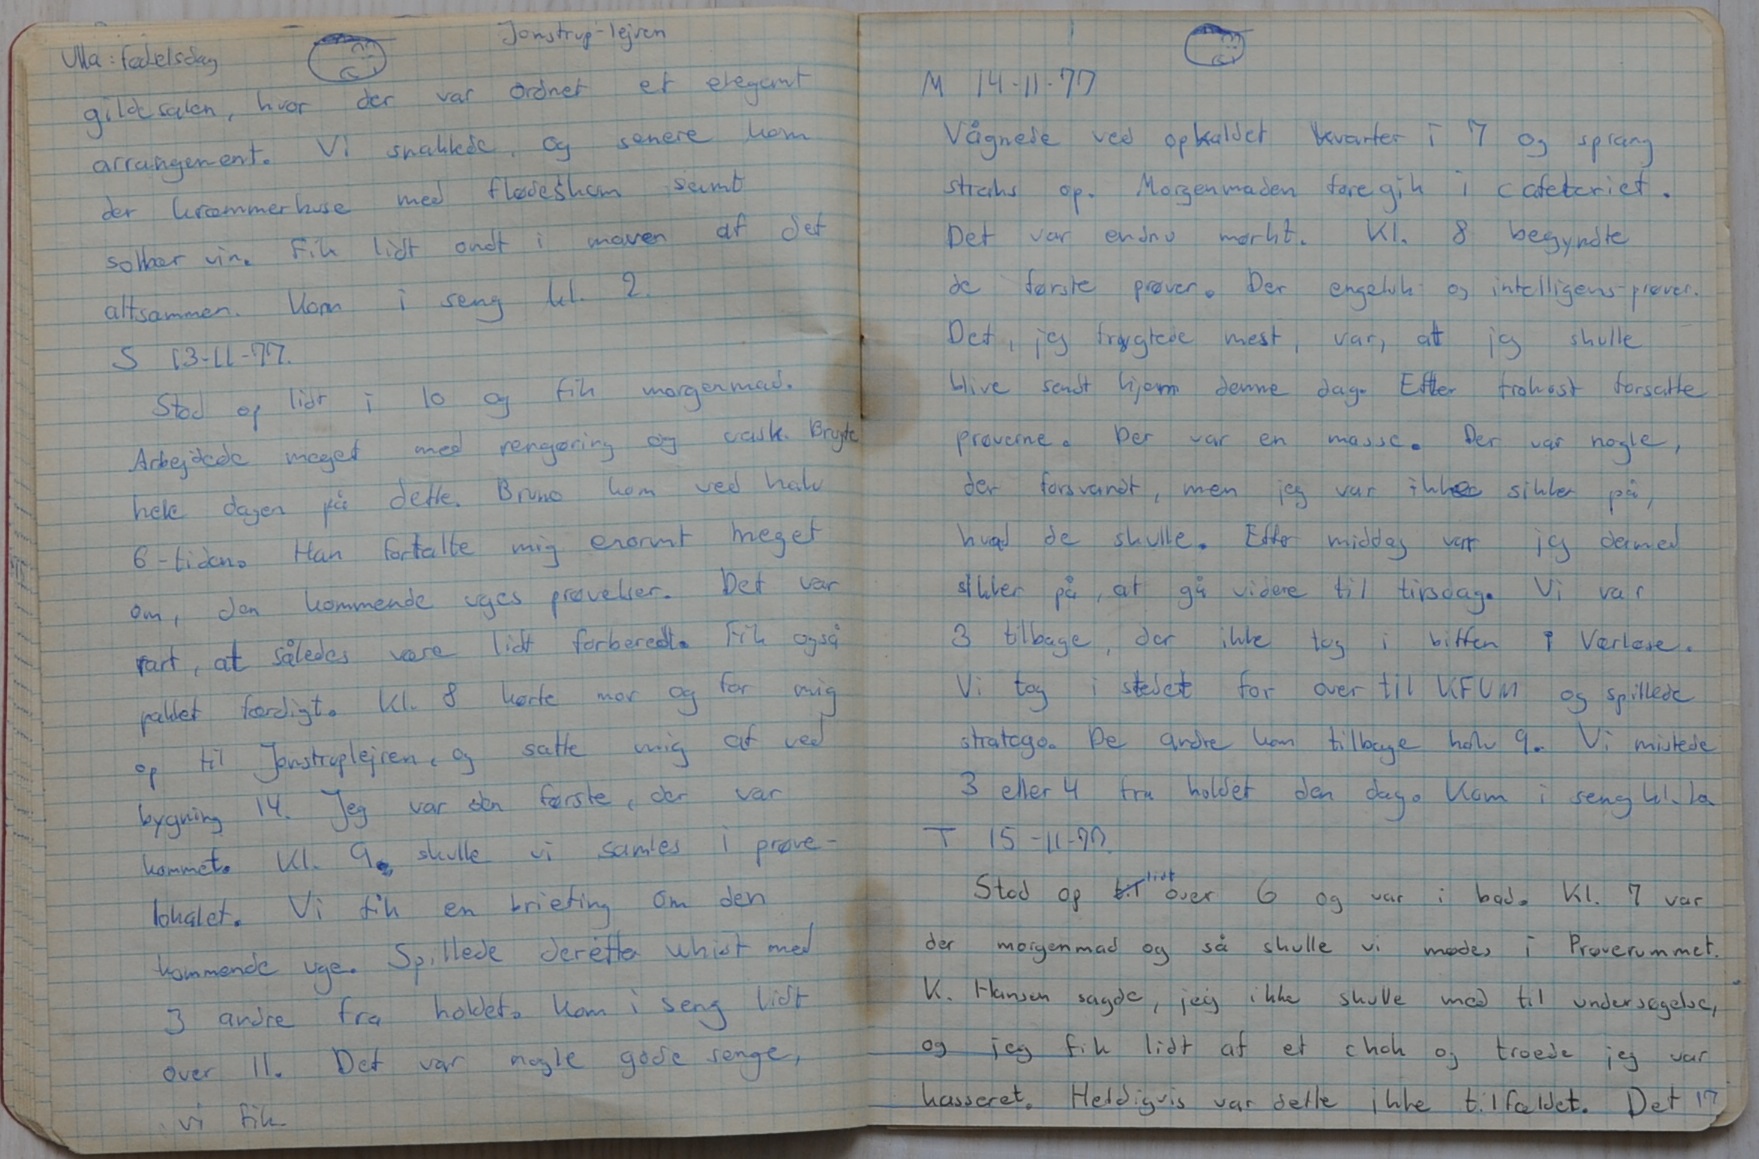 Jonstrup-lejren
Ulla: fødelsdag
gildesalen, hvor der var ordnet et elegant
arrangement. Vi snakkede, og senere kom
der kræmmerhuse med flødeskum samt
solbær vin. Fik lidt ondt i maven af det
altsammen. Kom i seng kl. 2.
S 13-11-77.
Stod op lidt i 10 og fik morgenmad.
Arbejdede meget med rengøring og vask. Brugte
hele dagen på dette. Bruno kom ved halv
6-tiden. Han fortalte mig enormt meget
om, den kommende uges prøvelser. Det var
rart, at således være lidt forberedt. Fik også
pakket færdigt. Kl. 8 kørte mor og far mig
op til Jonstruplejren, og satte mig af ved
bygning 14. Jeg var den første, der var
kommet. Kl. 9 skulle vi samles i prøve-
lokalet. Vi fik en briefing om den
kommende uge. Spillede derefter whist med
3 andre fra holdet. Kom i seng lidt
over 11. Det var nogle gode senge,
vi fik
M 14-11-77
Vågnede ved opkaldet kvarter i 7 og sprang
straks op. Morgenmaden foregik i cafeteriet.
Det var endnu mørkt. Kl. 8 begyndte
de første prøver. Der engelsk og intelligens-prøver.
Det, jeg frygtede mest, var, at jeg skulle
blive sendt hjem denne dag. Efter frokost forsatte
prøverne. Der var en masse. Der var nogle,
der forsvandt, men jeg var ikke sikker på,
hvad de skulle. Efter middag var jeg dermed
sikker på, at gå videre til tirsdag. Vi var
3 tilbage, der ikke tog i biffen i Værløse.
Vi tog i stedet for over til KFUM og spillede
stratego. De andre kom tilbage halv 9. Vi mistede
3 eller 4 fra holdet den dag. Kom i seng kl. 10
T 15-11-77.
Stod op lidt over 6 og var i bad. Kl. 7 var
der morgenmad og så skulle vi mødes i Prøverummet.
K. Hansen sagde, jeg ikke skulle med til undersøgelse,
og jeg fik lidt af et chok og troede jeg var
kasseret. Heldigvis var dette ikke tilfældet. Det